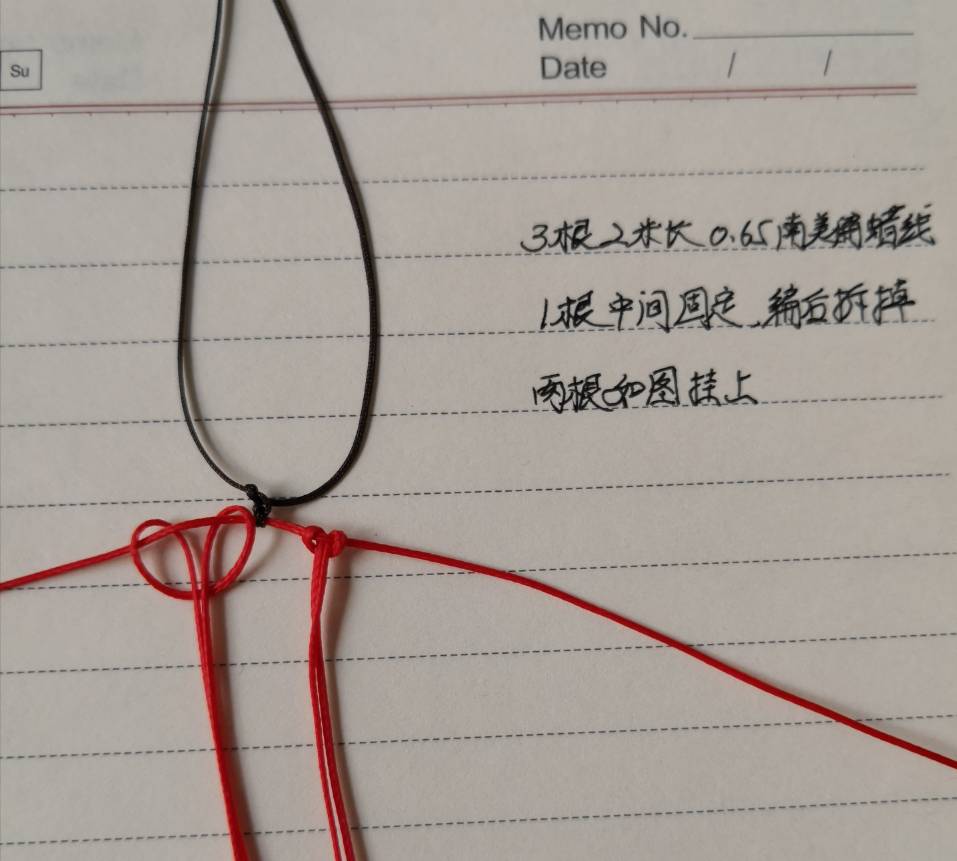 Su
Memo No.
Date / /
3根2米长0.65南美蜡线
1根中间固定,编后拆掉
两根如图挂上